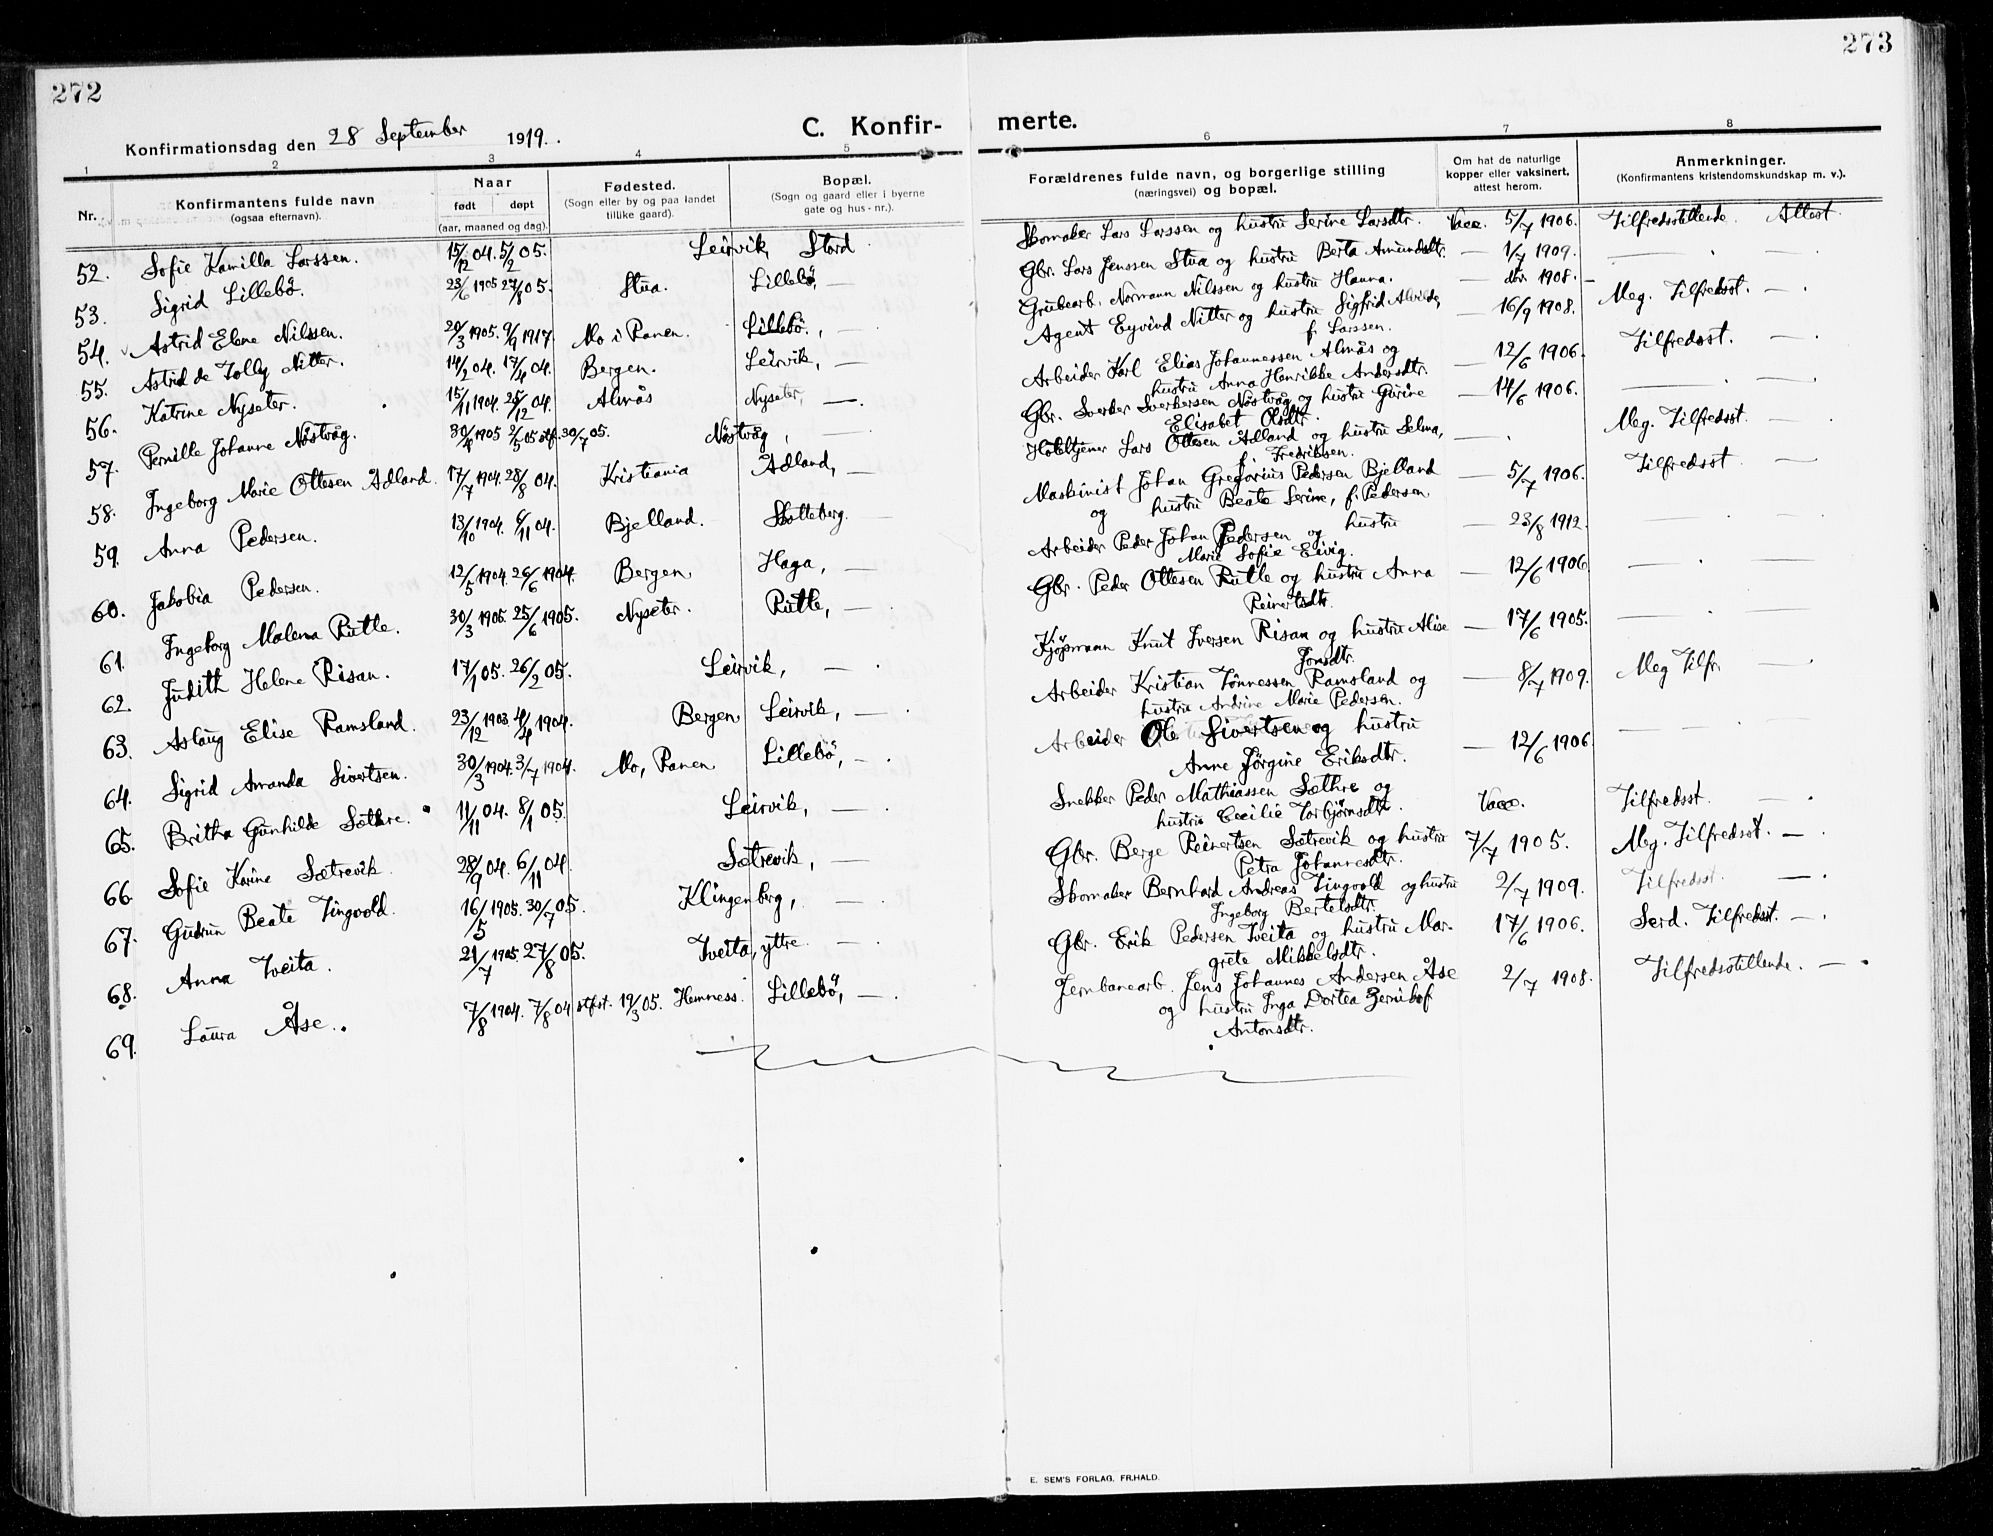 272
273
Konfirmationsdag den 28 September 1919.
C. Konfir-
merte.
1 2 3 4 5 6 7 8
Nr. Konfirmantens fulde navn (ogsaa efternavn). Naar født døpt (aar, maaned og dag). Fødested. (Sogn eller by og paa landet tillike gaard). Bopæl. (Sogn og gaard eller i byerne gate og hus-nr.). Forældrenes fulde navn, og borgerlige stilling (næringsvei) og bopæl. Om hat de naturlige kopper eller vaksinert, attest herom. Anmerkninger. (Konfirmantens kristendomskundskap m. v.).
52. Sofie Kamilla Larssen. 15/12 04. 5/2 05. Leirvik, Stord. Skomaker Lars Larssen og hustru Serine Larsdtr. Vacc. 5/7 1906. Tilfredsstillende. Attest.
53. Sigrid Lillebö. 23/6 1905 27/8 05. Stua. Lillebö, — Gbr. Lars Jenssen Stua og hustru Berta Amundsdtr. — 1/7 1909. — —
54. Astrid Elene Nilssen. 20/3 1905. 9/9 1917. Mo i Ranen. Lillebö, — Grubearb. Normann Nilssen og hustru Hanna. — 1908. — Meg. Tilfredsst. —
55. Astrid de Jolly Nitter. 14/2 04. 17/4 04. Bergen. Leirvik, — Agent Eyvind Nitter og hustru Sigfrid Alvilde,
f. Larssen. — 16/9 1908. Tilfredsst. —
56. Katrine Nyseter. 15/11 1904. 25/12 04. Almås Nyseter, — Arbeider Karl Elias Johannessen Almås og
hustru Anna Henrikke Andersdtr. — 12/6 1906. — —
57. Pernille Johanne Nöstvåg. 30/4 1905 2/5 05 stf. 30/7 05. Nöstvåg, — Gbr. Sverker Sverkersen Nöstvåg og hustru Gurine
Elisabet Olsdtr. — 14/6 1906. Meg. Tilfredsst. —
58. Ingeborg Marie Ottesen Ådland. 17/7 1904. 28/8 04. Kristiania Ådland, — Lars Ottesen Ådland og hustru Selma,
f. Fredriksen. — . Tilfredsst. —
59. Anna Pedersen. 13/10 1904. 6/11 04. Bjelland. Skotteberg. — Maskinist Johan Gregorius Pedersen Bjelland
og hustru Beate Serine, f. Pedersen. — 5/7 1906. — —
60. Jakobia Pedersen. 12/5 1904. 26/6 1904. Bergen Haga, — Arbeider Peder Johan Pedersen og hustru
Marie Sofie Eivig. — 23/8 1912. — —
61. Ingeborg Malena Rutle. 30/3 1905. 25/6 1905. Nyseter. Rutle, — Gbr. Peder Ottesen Rutle og hustru Anna
Reinertsdtr. — 12/6 1906. — —
62. Judith Helene Risan. 17/1 05. 26/2 05. Leirvik, — Kjöpmann Knut Iversen Risan og hustru Alise
Jonsdtr. — 17/6 1905. Meg Tilfr. —
63. Aslaug Elise Ramsland. 23/12 1903 4/4 1904. Bergen Leirvik, — Arbeider Kristian Tönnessen Ramsland og
hustru Andrine Marie Pedersen. — 8/7 1909. — —
64. Sigrid Amanda Sivertsen. 30/3 1904. 3/7 1904. Mo, Ranen Lillebö, — Arbeider Ole Sivertsen og hustru
Anne Jörgine Eriksdtr. — 12/6 1906.
65. Britha Gunhilde Sæthre. 11/11 04. 8/1 05. Leirvik, — Snekker Peder Mathiassen Sæthre og
hustru Cecilie Torbjörnsdtr. Vacc. Tilfredsst. —
66. Sofie Karine Sætrevik. 28/9 04. 6/11 04. Sætrevik, — Gbr. Berge Reinertsen Sætrevik og hustru
Petra Johannesdtr. 7/7 1905. Meg. Tilfredsst. —
67. Gudrun Beate Tingvold. 16/5 1905. 30/7 05. Klingenberg, — Skomaker Bernhard Andreas Tingvold og hustru
Ingeborg Bertelsdtr. 2/7 1909. Tilfredsst. —
68. Anna Tveita. 21/7 1905. 27/8 05. Tveita, yttre. — Gbr. Erik Pedersen Tveita og hustru Mar-
grete Mikkelsdtr. 17/6 1906. Serd. Tilfredsst. —
69. Laura Åse. 7/8 1904. 7/8 04 stfst. 19/3 05. Hemness. Lillebö, — Jernbanearb. Jens Johannes Andersen Åse
og hustru Inga Dortea
Antonsdtr. 2/7 1908. Tilfredsstillende. —
E. SEM'S FORLAG, FR.HALD.